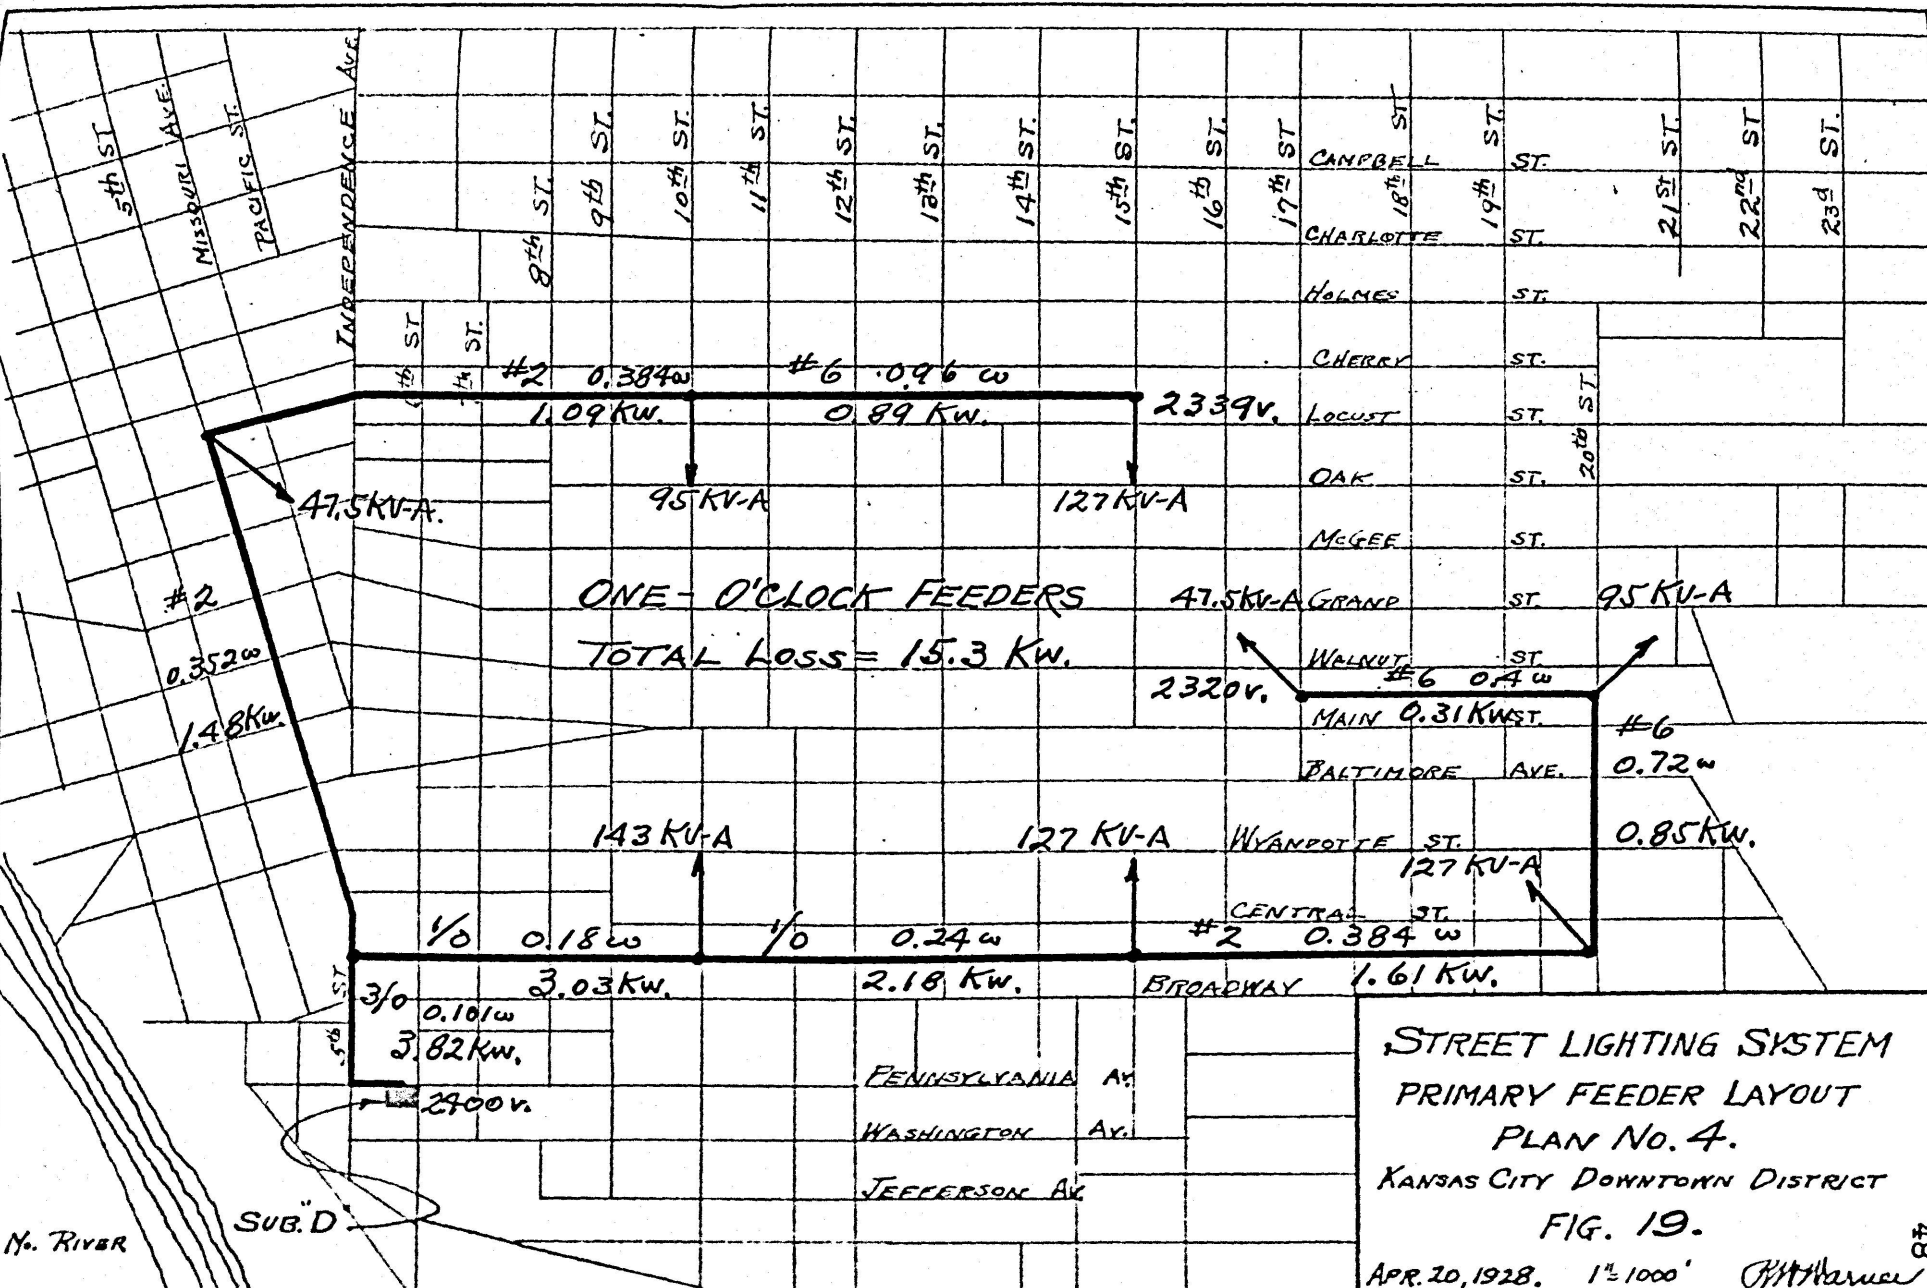 5th ST
MISSOURI AVE.
PACIFIC ST.
INDEPENDENCE AVE.
8th ST.
9th ST.
10th ST.
11th ST.
12th ST.
13th ST.
14th ST.
15th ST.
16th ST.
17th ST
18th ST
19th ST.
21st ST.
22nd ST
23d ST.
CAMPBELL ST.
CHARLOTTE ST.
HOLMES ST.
CHERRY ST.
LOCUST ST.
OAK ST.
McGEE ST.
GRAND ST.
WALNUT ST.
MAIN ST.
BALTIMORE AVE.
WYANDOTTE ST.
CENTRAL ST.
BROADWAY
20th ST.
ST
ST.
#2 0.384ω
1.09 KW.
#6 0.96 ω
0.89 KW.
2339v.
47.5KV-A.
95KV-A
127KV-A
#2
0.352ω
1.48KW.
ONE-O'CLOCK FEEDERS
TOTAL LOSS = 15.3 KW.
47.5KV-A
95KV-A
2320v.
#6 0.4ω
0.31KW
#6
0.72ω
0.85KW.
143 KV-A
127 KV-A
127 KV-A
1/0 0.18ω
3.03KW.
1/0 0.24ω
2.18 KW.
#2 0.384 ω
1.61 KW.
5th ST
3/0
0.101ω
3.82KW.
2400v.
PENNSYLVANIA AV.
WASHINGTON AV.
JEFFERSON AV.
SUB."D"
Mo. RIVER
STREET LIGHTING SYSTEM
PRIMARY FEEDER LAYOUT
PLAN No. 4.
KANSAS CITY DOWNTOWN DISTRICT
FIG. 19.
APR. 20, 1928. 1"=1000'
48